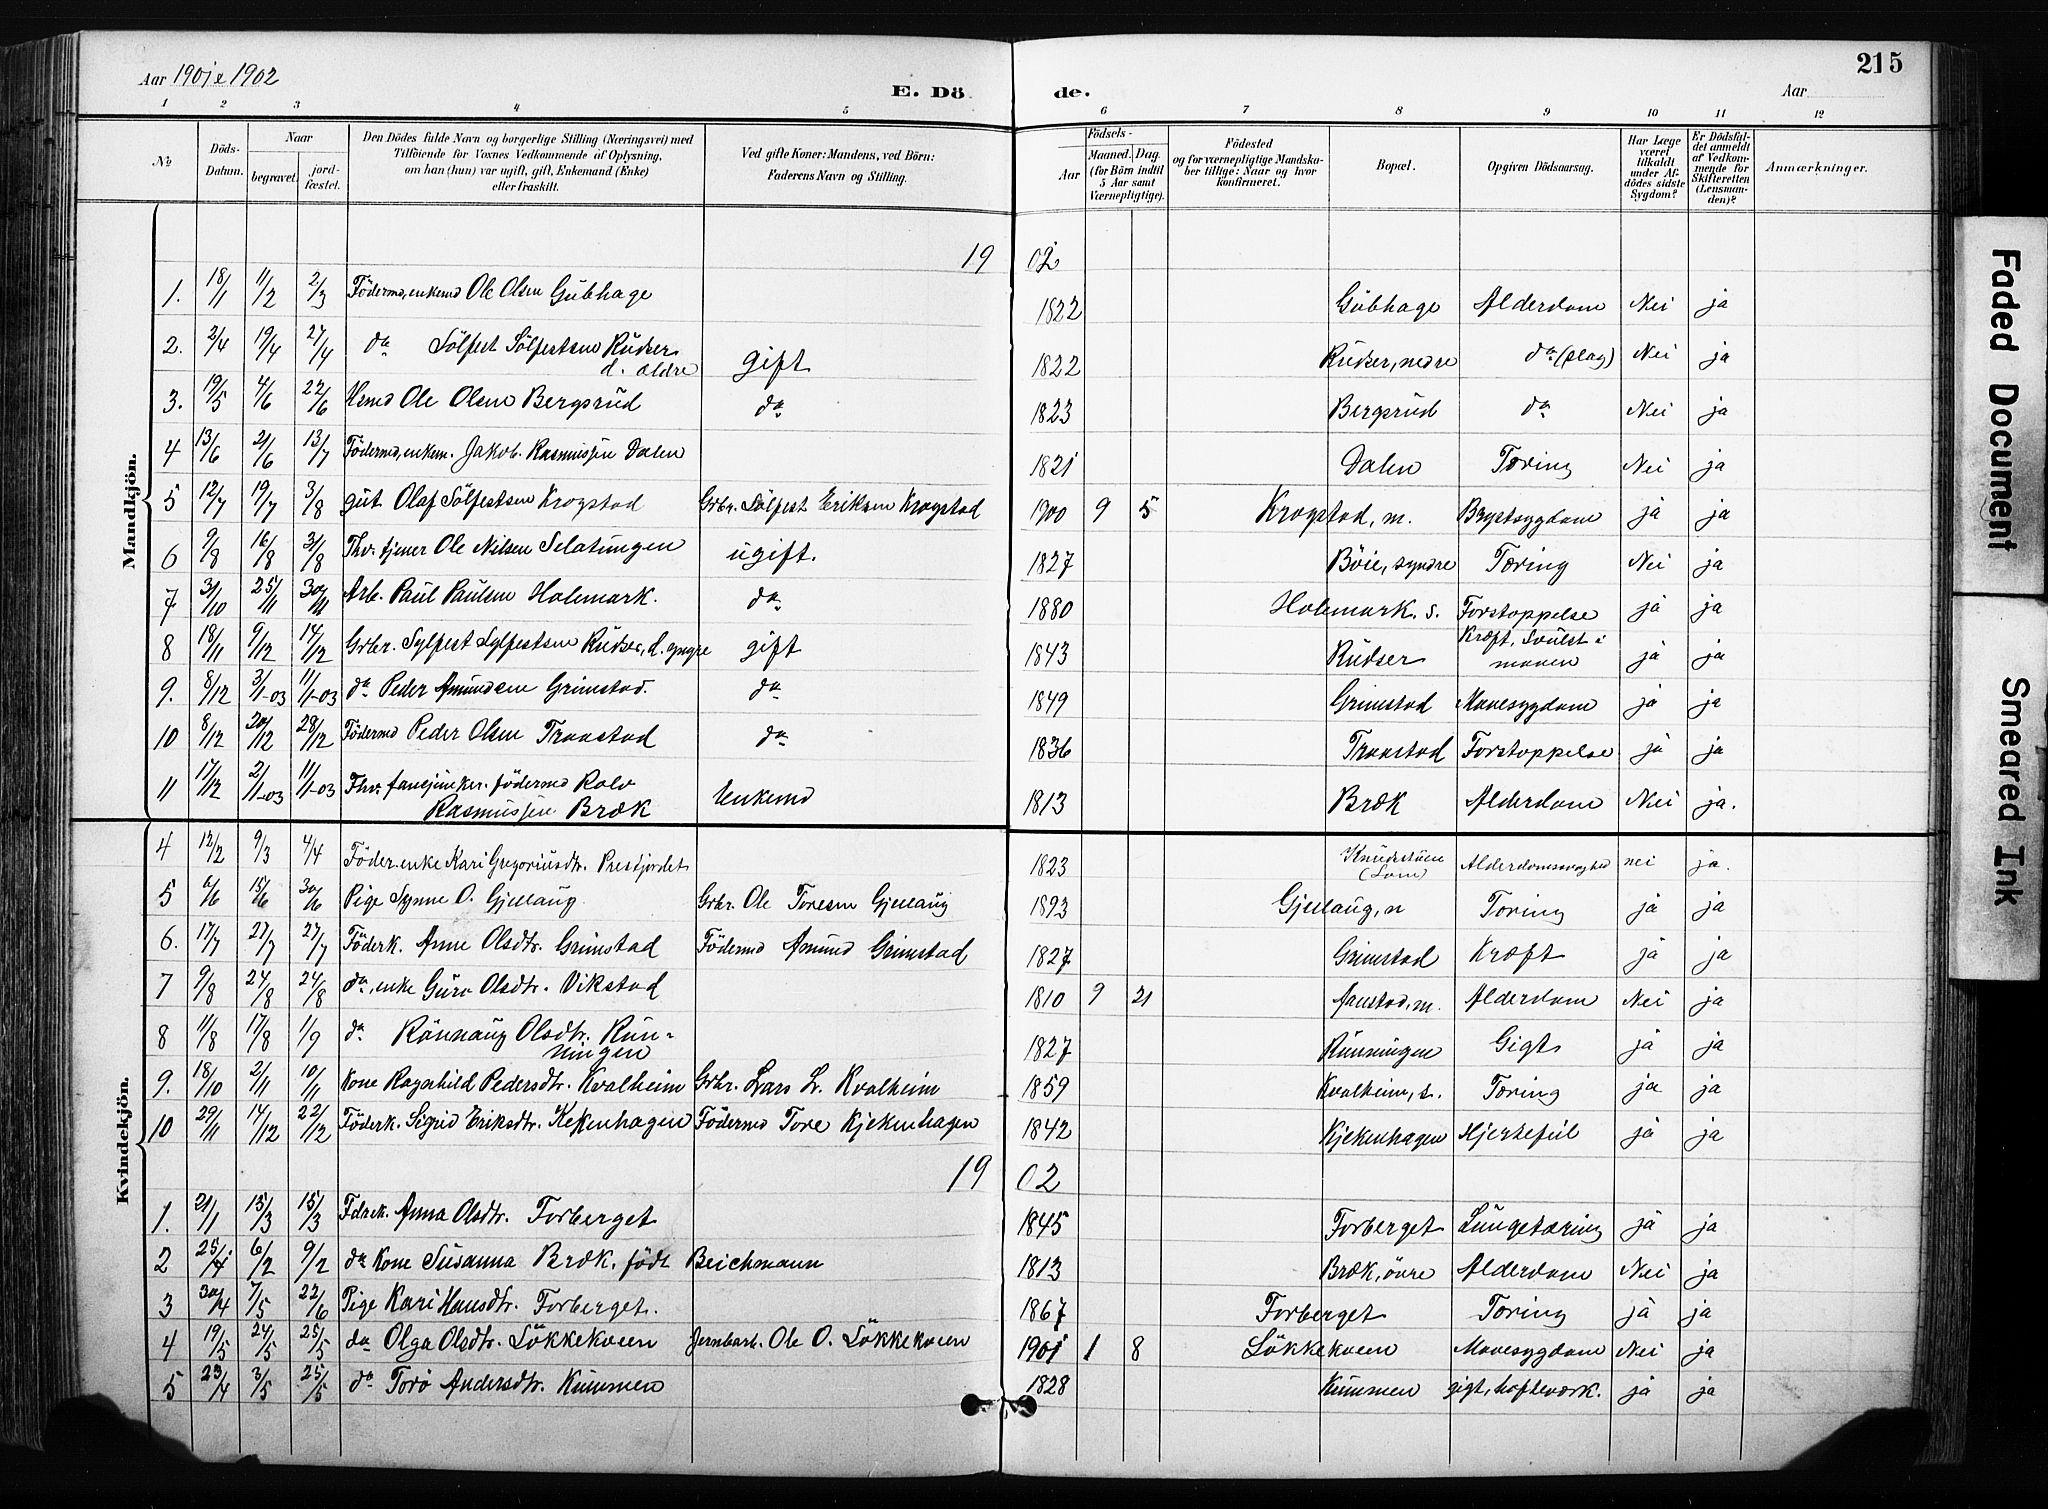 Aar 1901 & 1902
E. Dö de.
Aar
215
1 2 3 4 5 6 7 8 9 10 11 12
No
Döds-Datum.
Naar
begravet.
jord-fæstet.
Den Dödes fulde Navn og borgerlige Stilling (Næringsvei) med
Tilföiende for Voxnes Vedkommende af Oplysning,
om han (hun) var ugift, gift, Enkemand (Enke)
eller fraskilt.
Ved gifte Koner: Mandens, ved Börn:
Faderens Navn og Stilling.
Födsels-
Aar
Maaned. Dag.
(for Börn indtil
5 Aar samt
Værnepligtige).
Födested
og for værnepligtige Mandska-
ber tillige: Naar og hvor
konfirmeret.
Bopæl.
Opgiven Dödsaarsag.
Har Læge
været
tilkaldt
under Af-
dödes sidste
Sygdom?
Er Dödsfal-
det anmeldt
af Vedkom-
mende for
Skifteretten
(Lensman-
den)?
Anmærkninger.
Mandkjön.
19 02
1. 18/1 11/2 2/3 Födermd, enkemd Ole Olsen Gubhage 1822 Gubhage Alderdom Nei ja
2. 2/4 19/4 27/4 do Sölfest Sölfestsen Rudser d. ældre gift 1822 Rudser, nedre do (slag) Nei ja
3. 19/5 4/6 22/6 Hsmd Ole Olsen Bergsrud do 1823 Bergsrud do Nei ja
4 13/6 21/6 13/7 Födermd, enkem. Jakob Rasmussen Dalen 1821 Dalen Tæring Nei ja
5 12/7 19/7 3/8 gut Olaf Sölfestsen Krogstad Grbr. Sölfest Eriksen Krogstad 1900 9 5 Krogstad, m. Brystsygdom ja ja
6 9/8 16/8 31/8 Thv. tjener Ole Nilsen Selatungen ugift. 1827 Böie, syndre Tæring Nei ja
7 31/10 25/11 30/11 Arb. Paul Paulsen Holemark. do 1880 Holemark. s. Forstoppelse ja ja
8 18/11 9/12 14/12 Grbr. Sylfest Sylfestsen Rudser, d. yngre gift 1843 Rudser Kræft, Svulst i maven ja ja
9. 8/12 3/1-03 11/1-03 do Peder Amundsen Grimstad. do 1849 Grimstad Mavesygdom ja ja
10 8/12 20/12 28/12 Födermd Peder Olsen Traastad do 1836 Traastad Forstoppelse ja ja
11 17/12 2/1-03 11/1-03 Fhv. fanejunker. födermd Rolv
Rasmussen Bræk Enkemd 1813 Bræk Alderdom Nei ja.
Kvindekjön.
4 12/2 9/3 4/4 Föder. enke Kari Gregoriusdtr. Prestjordet 1823 Knudsstuen (Lom) Alderdomssvaghed nei ja.
5 6/6 15/6 30/6 Pige Synne O. Gjellaug Grbr. Ole Toresen Gjellaug 1893 Gjellaug, n Tæring ja ja
6. 17/7 27/7 27/7 Föderk. Anne Olsdtr. Grimstad Födermd Amund Grimstad 1827 Grimstad Kræft ja ja
7 9/8 24/8 24/8 do, enke Guro Olsdtr. Vikstad 1810 9 21 Aanstad, m. Alderdom Nei ja
8 11/8 17/8 1/9 do Rönnaug Olsdtr. Run-
ningen 1827 Runningen Gigt ja ja
9. 18/10 2/11 10/11 Kone Ragnhild Pedersdtr. Kvalheim Grbr. Lars L. Kvalheim 1859 Kvalheim, s. Tæring ja ja
10 29/11 14/12 22/12 Föderk. Sigrid Eriksdtr. Kekenhagen Födermd Tore Kjekenhagen 1842 Kjekenhagen Hjertefeil ja ja
19 02
1. 21/1 15/3 15/3 Fdrck. Anna Olsdtr. Forberget 1845 Forberget Lungetæring ja ja
2 25/1 6/2 9/2 do Kone Susanna Bræk, födt Beichmann 1813 Bræk, övre Alderdom Nei ja
3 30/4 7/5 22/6 Pige Kari Hansdtr. Forberget. 1867 Forberget Tæring ja ja
4 19/5 24/5 25/5 do Olga Olsdtr. Lökkekveen Jernbarb. Ole O. Lökkekveen 1901 1 8 Lökkekveen Mavesygdom Nei ja
5 23/4 3/5 25/5 do Torö Andersdtr. Kummen 1828 Kummen gigt, hofteværk. ja ja
Faded Document
Smeared Ink